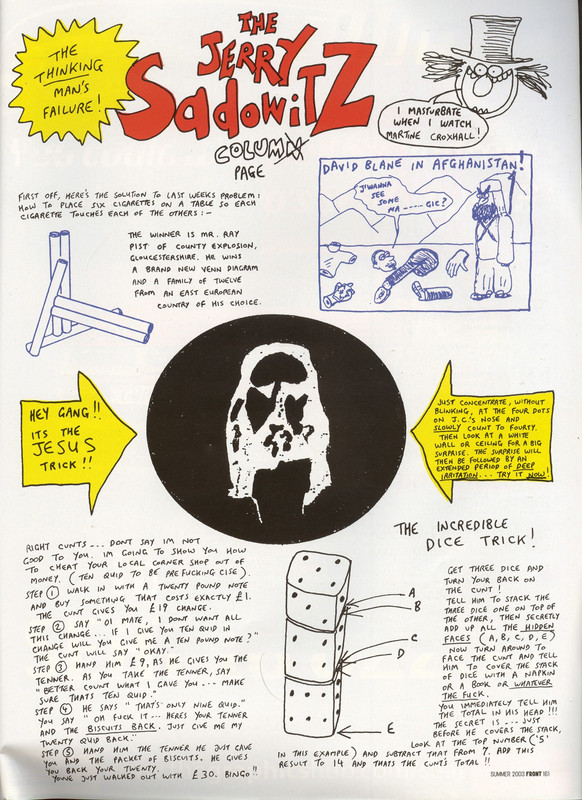 THE
JERRY
SadowiTZ
COLUMN
PAGE
THE
THINKING
MAN'S
FAILURE!
I MASTURBATE
WHEN I WATCH
MARTINE CROXHALL!
FIRST OFF, HERE'S THE SOLUTION TO LAST WEEKS PROBLEM:
HOW TO PLACE SIX CIGARETTES ON A TABLE SO EACH
CIGARETTE TOUCHES EACH OF THE OTHERS:-
THE WINNER IS MR. RAY
PIST OF COUNTY EXPLOSION,
GLOUCESTERSHIRE. HE WINS
A BRAND NEW VENN DIAGRAM
AND A FAMILY OF TWELVE
FROM AN EAST EUROPEAN
COUNTRY OF HIS CHOICE.
DAVID BLANE IN AFGHANISTAN!
J'WANNA
SEE
SOME
MA-----GIC?
HEY GANG!!
ITS THE
JESUS
TRICK!!
JUST CONCENTRATE, WITHOUT
BLINKING, AT THE FOUR DOTS
ON J.C.'S NOSE AND
SLOWLY COUNT TO FOURTY.
THEN LOOK AT A WHITE
WALL OR CEILING FOR A BIG
SURPRISE. THE SURPRISE WILL
THEN BE FOLLOWED BY AN
EXTENDED PERIOD OF DEEP
IRRITATION... TRY IT NOW!
RIGHT CUNTS --- DONT SAY IM NOT
GOOD TO YOU. IM GOING TO SHOW YOU HOW
TO CHEAT YOUR LOCAL CORNER SHOP OUT OF
MONEY. (TEN QUID TO BE PRE FUCKING CISE).
STEP 1 WALK IN WITH A TWENTY POUND NOTE
AND BUY SOMETHING THAT COSTS EXACTLY £1.
THE CUNT GIVES YOU £19 CHANGE.
STEP 2 SAY "OI MATE, I DONT WANT ALL
THIS CHANGE... IF I GIVE YOU TEN QUID IN
CHANGE WILL YOU GIVE ME A TEN POUND NOTE?"
THE CUNT WILL SAY "OKAY."
STEP 3 HAND HIM £9, AS HE GIVES YOU THE
TENNER. AS YOU TAKE THE TENNER, SAY
"BETTER COUNT WHAT I GAVE YOU--- MAKE
SURE THATS TEN QUID."
STEP 4 HE SAYS "THAT'S ONLY NINE QUID."
YOU SAY "OH FUCK IT... HERE'S YOUR TENNER
AND THE BISCUITS BACK. JUST GIVE ME MY
TWENTY QUID BACK."
STEP 5 HAND HIM THE TENNER HE JUST GAVE
YOU AND THE PACKET OF BISCUITS. HE GIVES
YOU BACK YOUR TWENTY.
YOUVE JUST WALKED OUT WITH £30. BINGO!!
THE INCREDIBLE
DICE TRICK!
A
B
C
D
E
GET THREE DICE AND
TURN YOUR BACK ON
THE CUNT!
TELL HIM TO STACK THE
THREE DICE ONE ON TOP OF
THE OTHER, THEN SECRETLY
ADD UP ALL THE HIDDEN
FACES (A, B, C, D, E)
NOW TURN AROUND TO
FACE THE CUNT AND TELL
HIM TO COVER THE STACK
OF DICE WITH A NAPKIN
OR A BOOK OR WHATEVER
THE FUCK.
YOU IMMEDIATELY TELL HIM
THE TOTAL IN HIS HEAD!!!
THE SECRET IS --- JUST
BEFORE HE COVERS THE STACK,
LOOK AT THE TOP NUMBER ('5'
IN THIS EXAMPLE) AND SUBTRACT THAT FROM 7. ADD THIS
RESULT TO 14 AND THATS THE CUNT'S TOTAL!!
SUMMER 2003 FRONT 161